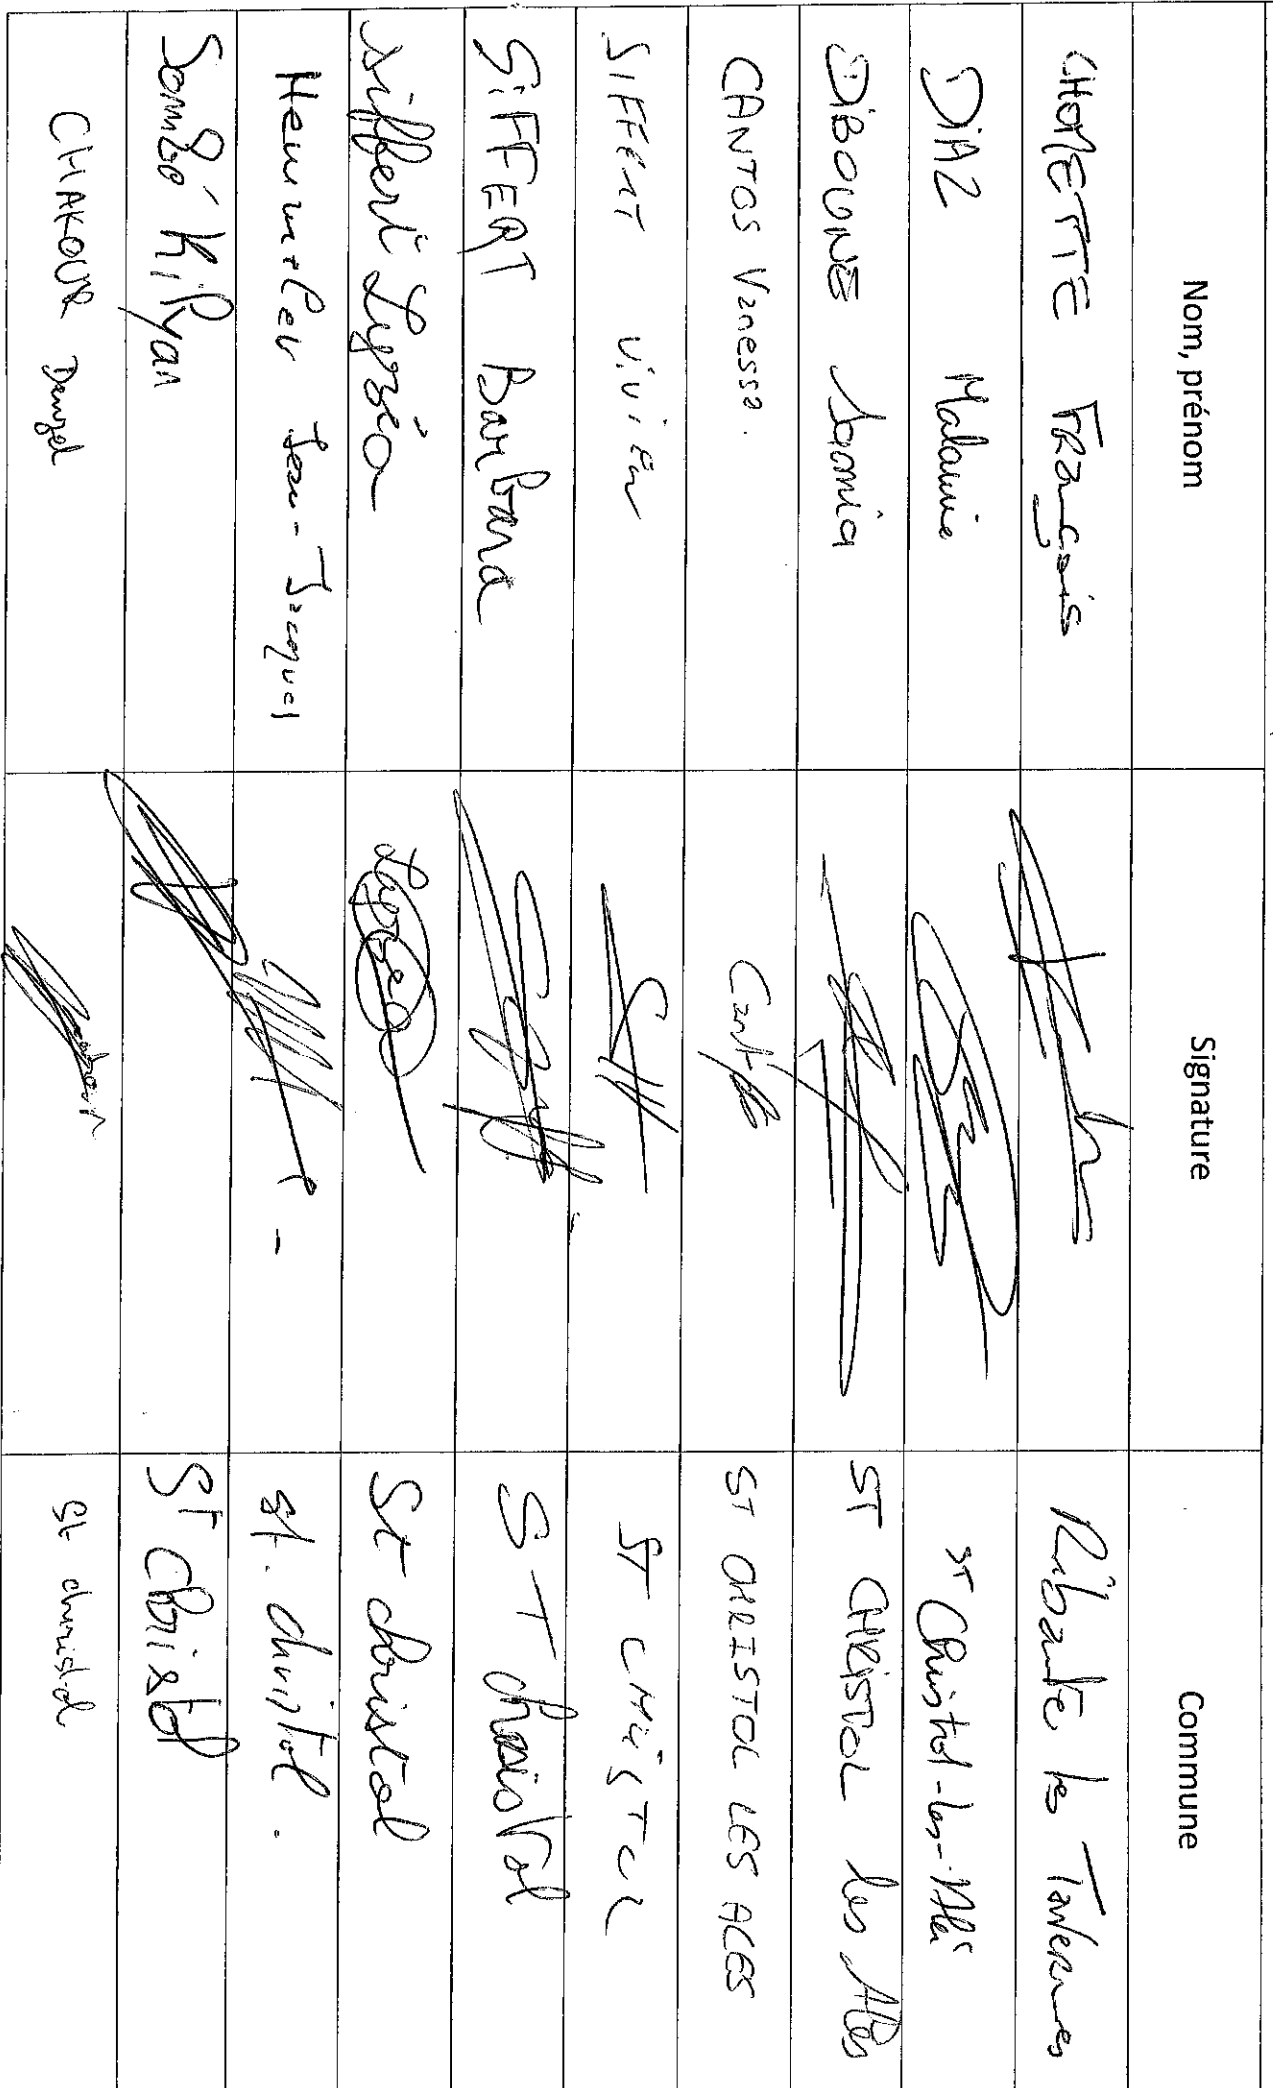 Nom, prénom Signature Commune
CHOMETTE François Ribaute les Tavernes
DIAZ Melanie ST Christol-les-Alès
DiBOUNE Samia ST CHRISTOL les Alès
CANTOS Vanessa. Cantos ST CHRISTOL LES ALES
SIFFERT ViViEN ST CHRISTOL
SiFFERT Barbara ST christol
Siffert Lyzéa Lyzea St christol
Jean-Jacques St. christol.
Sombó Ki Ryan ST Christol
CHAKOUR Denzel St christol